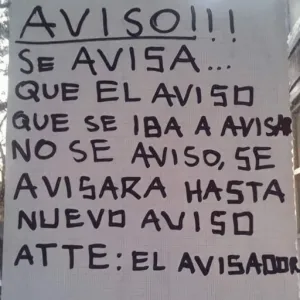 AVISO!!!
SE AVISA...
QUE EL AVISO
QUE SE IBA A AVISAR
NO SE AVISO, SE
AVISARA HASTA
NUEVO AVISO
ATTE: EL AVISADOR